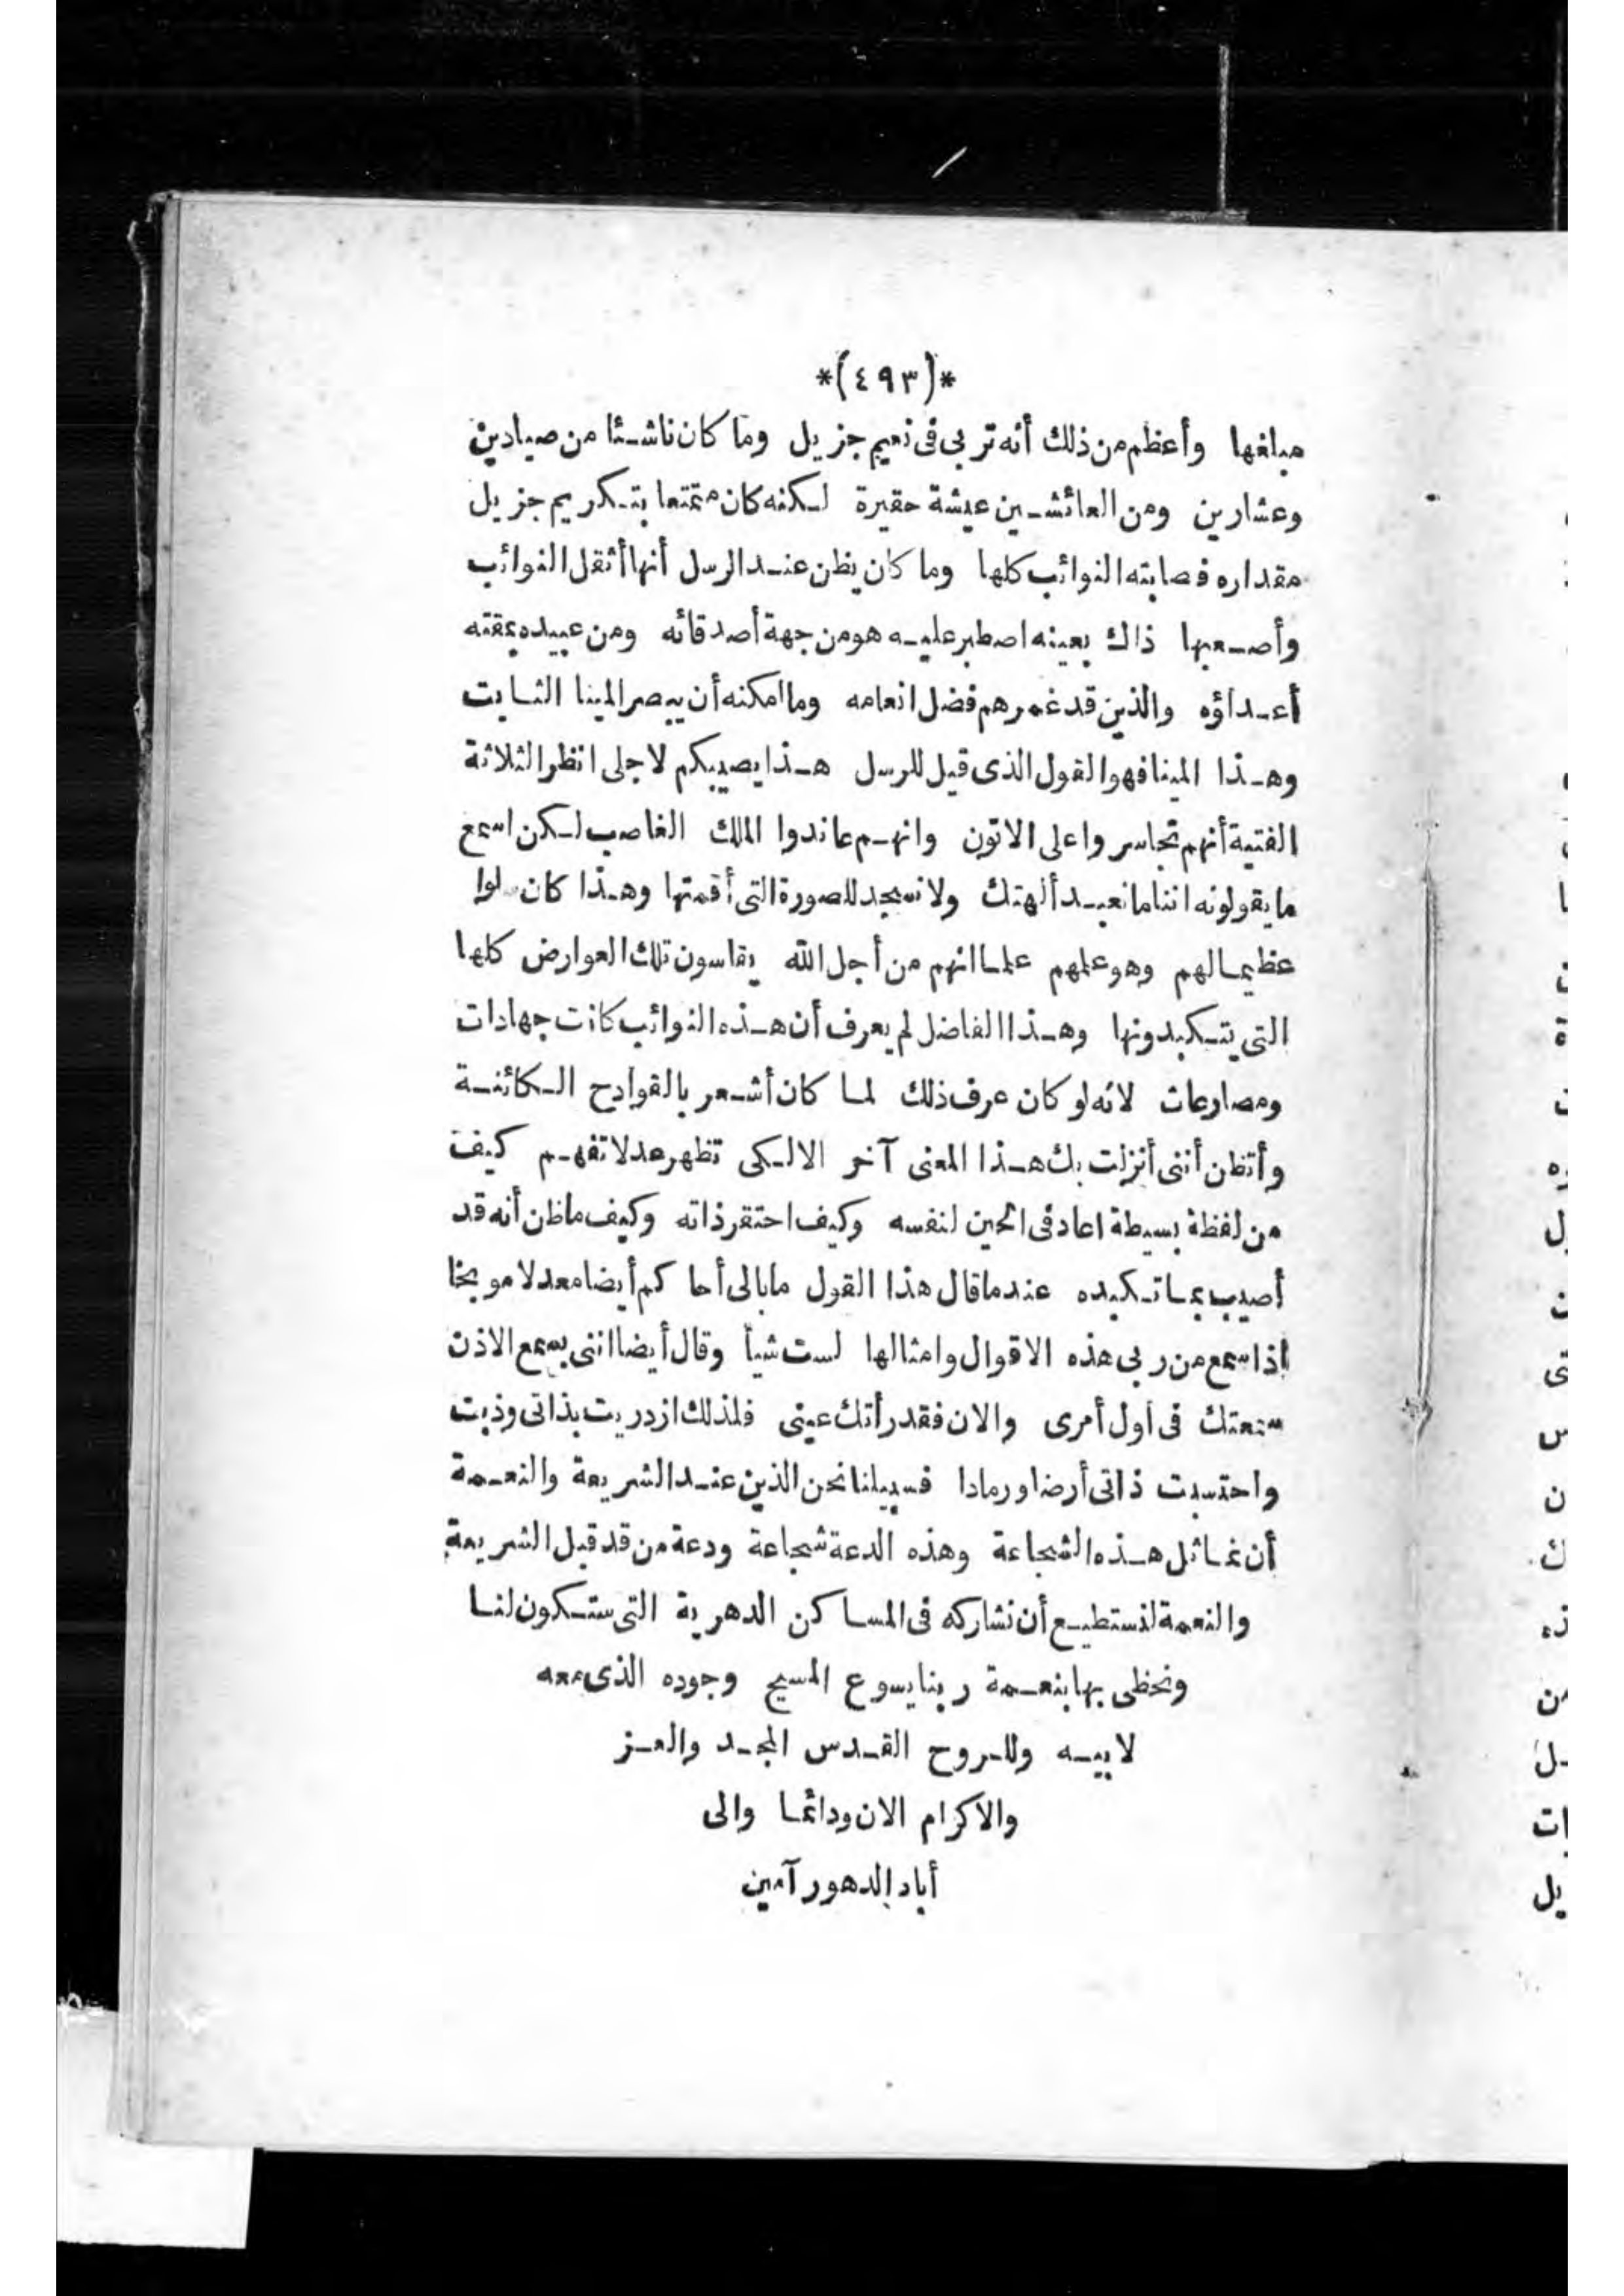 *(٤٩٣)*
مبلغها وأعظم من ذلك أنه تربى فى نعيم جزيل وما كان ناشئا من صيادين
وعشارين ومن العائشين عيشة حقيرة لكنه كان متمتعا بتكريم جزيل
مقداره فصابته النوائب كلها وما كان يظن عند الرسل أنها أثقل النوائب
وأصعبها ذاك بعينه اصطبر عليه هو من جهة أصدقائه ومن عبيده مقته
أعداؤه والذين قد غمرهم فضل انعامه وما امكنه أن يبصر المينا الثابت
وهذا المينا فهو القول الذى قيل للرسل هذا يصيبكم لاجلى انظر الثلاثة
الفتية أنهم تجاسروا على الاتون وانهم عاندوا الملك الغاصب لكن اسمع
ما يقولونه اننا ما نعبد ألهتك ولا نسجد للصورة التى أقمتها وهذا كان
عظيما لهم وهو علمهم علما انهم من أجل الله يقاسون تلك العوارض كلها
التى يتكبدونها وهذا الفاضل لم يعرف أن هذه النوائب كانت جهادات
ومصارعات لانه لو كان عرف ذلك لما كان أشعر بالقوادح الكائنة
وأتظن أننى أنزلت بك هذا المعنى آخر الا لكى تظهر عدلا تفهم كيف
من لفظة بسيطة اعاد فى الحين لنفسه وكيف احتقر ذاته وكيف ما ظن أنه قد
أصيب بما تكبده عندما قال هذا القول ما بالى أحاكم أيضا معدلا موبخا
اذا سمع من ربى هذه الاقوال وامثالها لست شيأ وقال أيضا اننى بسمع الاذن
سمعتك فى أول أمرى والان فقد رأتك عينى فلذلك ازدريت بذاتى وذبت
واحتسبت ذاتى أرضا ورمادا فسبيلنا نحن الذين عند الشريعة والنعمة
أن نماثل هذه الشجاعة وهذه الدعة شجاعة ودعة من قد قبل الشريعة
والنعمة لنستطيع أن نشاركه فى المساكن الدهرية التى ستكون لنا
ونحظى بها بنعمة ربنا يسوع المسيح وجوده الذى معه
لابيه وللروح القدس المجد والعز
والاكرام الان ودائما والى
أباد الدهور آمين